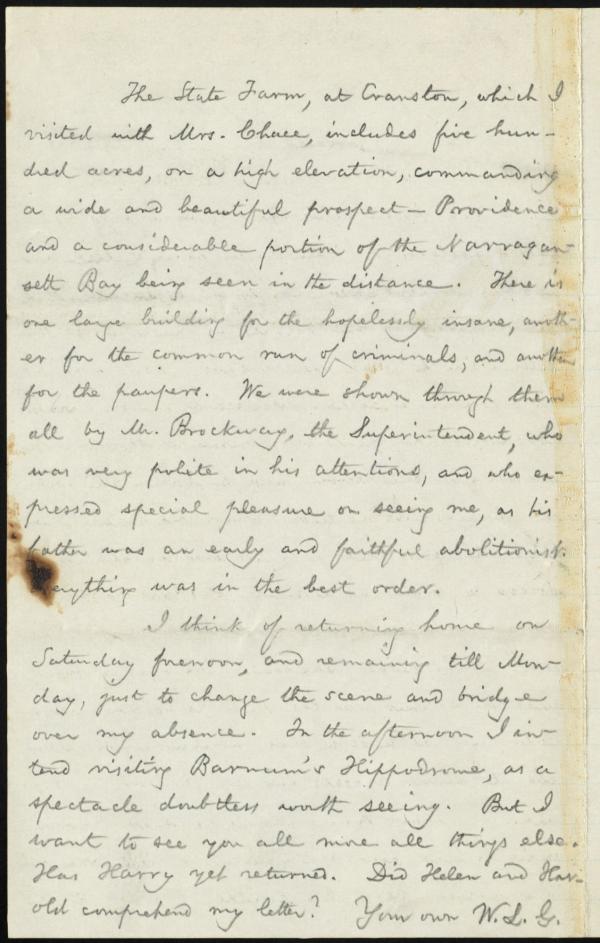 The State Farm, at Cranston, which I
visited with Mrs. Chace, includes five hun-
dred acres, on a high elevation, commanding
a wide and beautiful prospect — Providence
and a considerable portion of the Narragan-
sett Bay being seen in the distance. There is
one large building for the hopelessly insane, anoth-
er for the common run of criminals, and another
for the paupers. We were shown through them
all by Mr. Brockway, the Superintendent, who
was very polite in his attentions, and who ex-
pressed special pleasure on seeing me, as his
father was an early and faithful abolitionist.
Everything was in the best order.
I think of returning home on
Saturday forenoon, and remaining till Mon-
day, just to change the scene and bridge
over my absence. In the afternoon I in-
tend visiting Barnum's Hippodrome, as a
spectacle doubtless worth seeing. But I
want to see you all more all things else.
Has Harry yet returned. Did Helen and Har-
old comprehend my letter? Your own W. L. G.